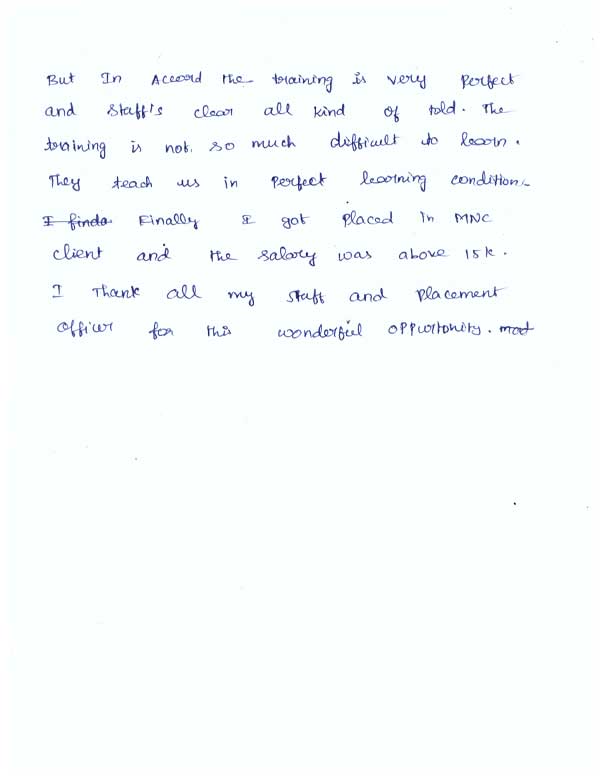 But In Accord the training is very perfect
and staff's clear all kind of told. The
training is not so much difficult to learn.
They teach us in perfect learning condition.
I finda Finally I got placed in MNC
client and the salary was above 15k.
I Thank all my staff and placement
officer for this wonderful oppurtonity.